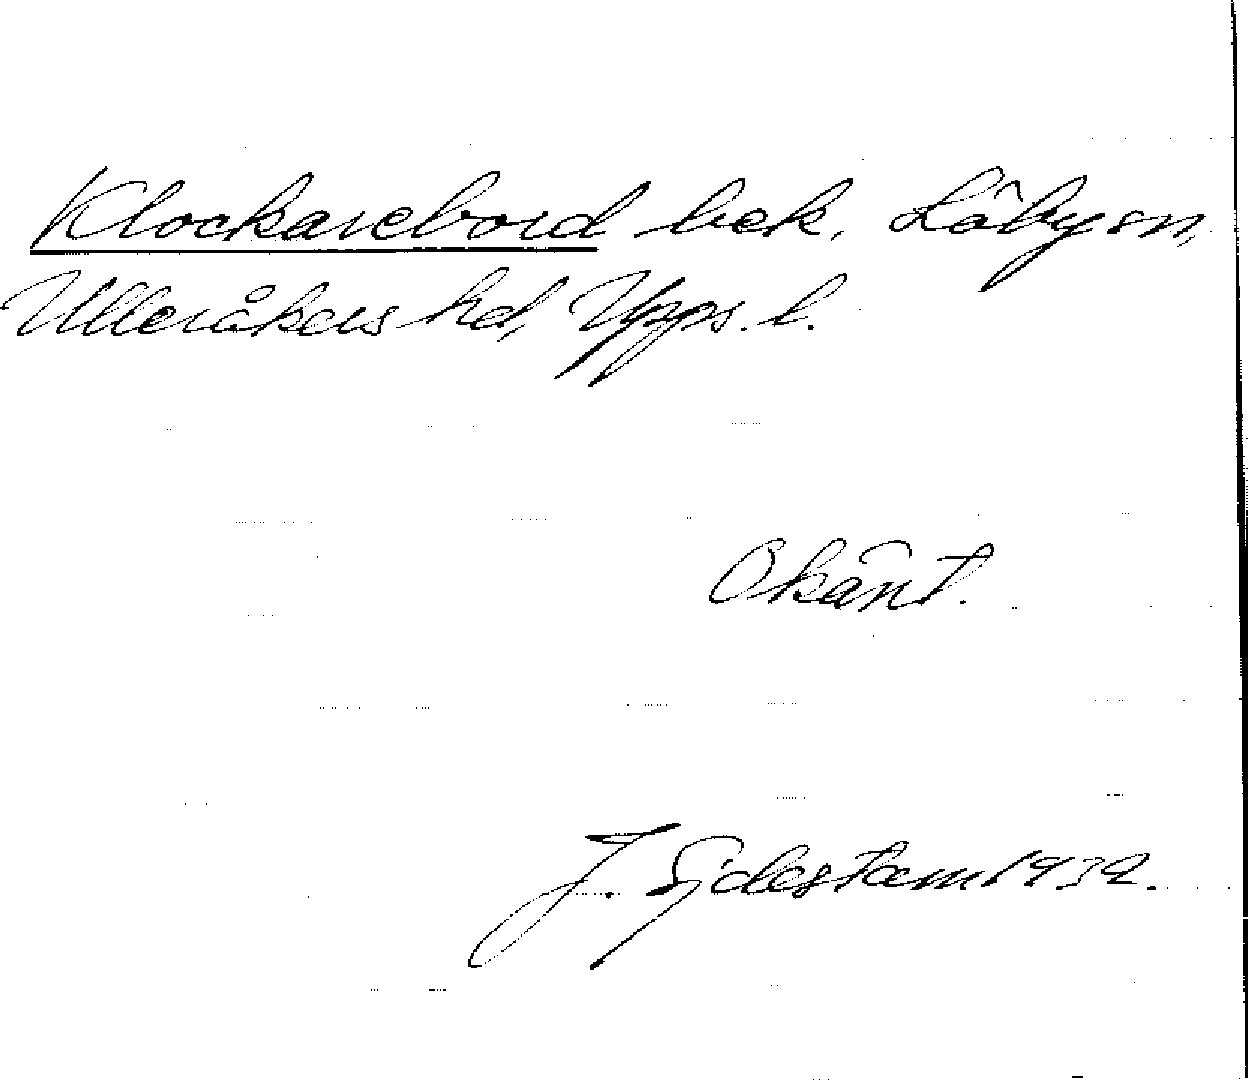 Klockarebord bek. Läby sn,
Ulleråkers hd, Upps. l.
Okänt.
J. Sjdestam 1932.